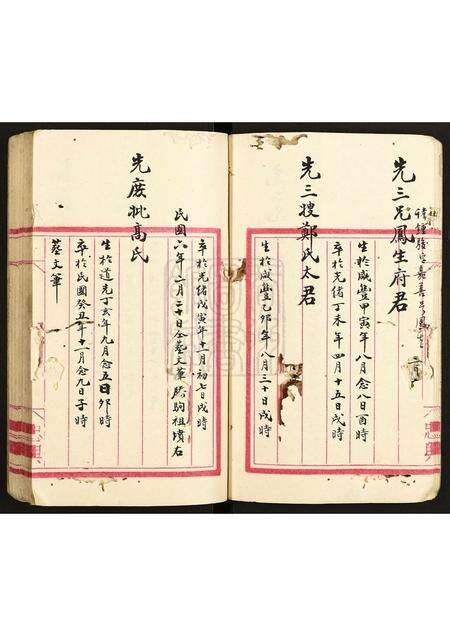 先三兄鳳生府君
生於咸豐甲寅年八月念八日酉時
卒於光緒丁未年四月十五日戌時
先三嫂鄭氏太君
生於咸豐乙卯年八月三十日戌時
卒於光緒戊寅年十一月初七日戌時
民國六年二月二十日合墓文筆路駒祖墳右
先庶妣高氏
生於道光丁亥年九月念五日卯時
卒於民國癸丑年十一月念九日子時
墓文筆
忠興
忠興